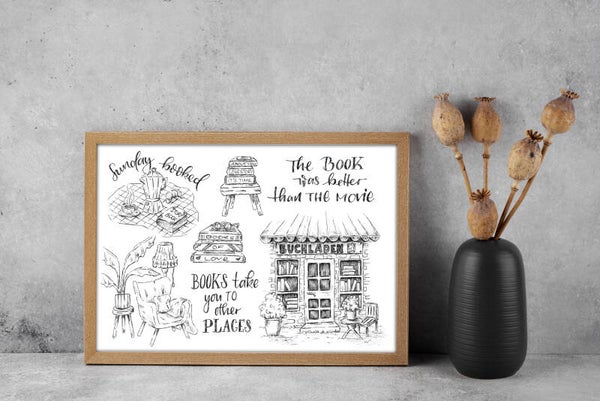 Sunday booked
The BOOK
was better
than THE MOVIE
BUCHLADEN
LOVE
BOOKS take
you TO
other
PLACES